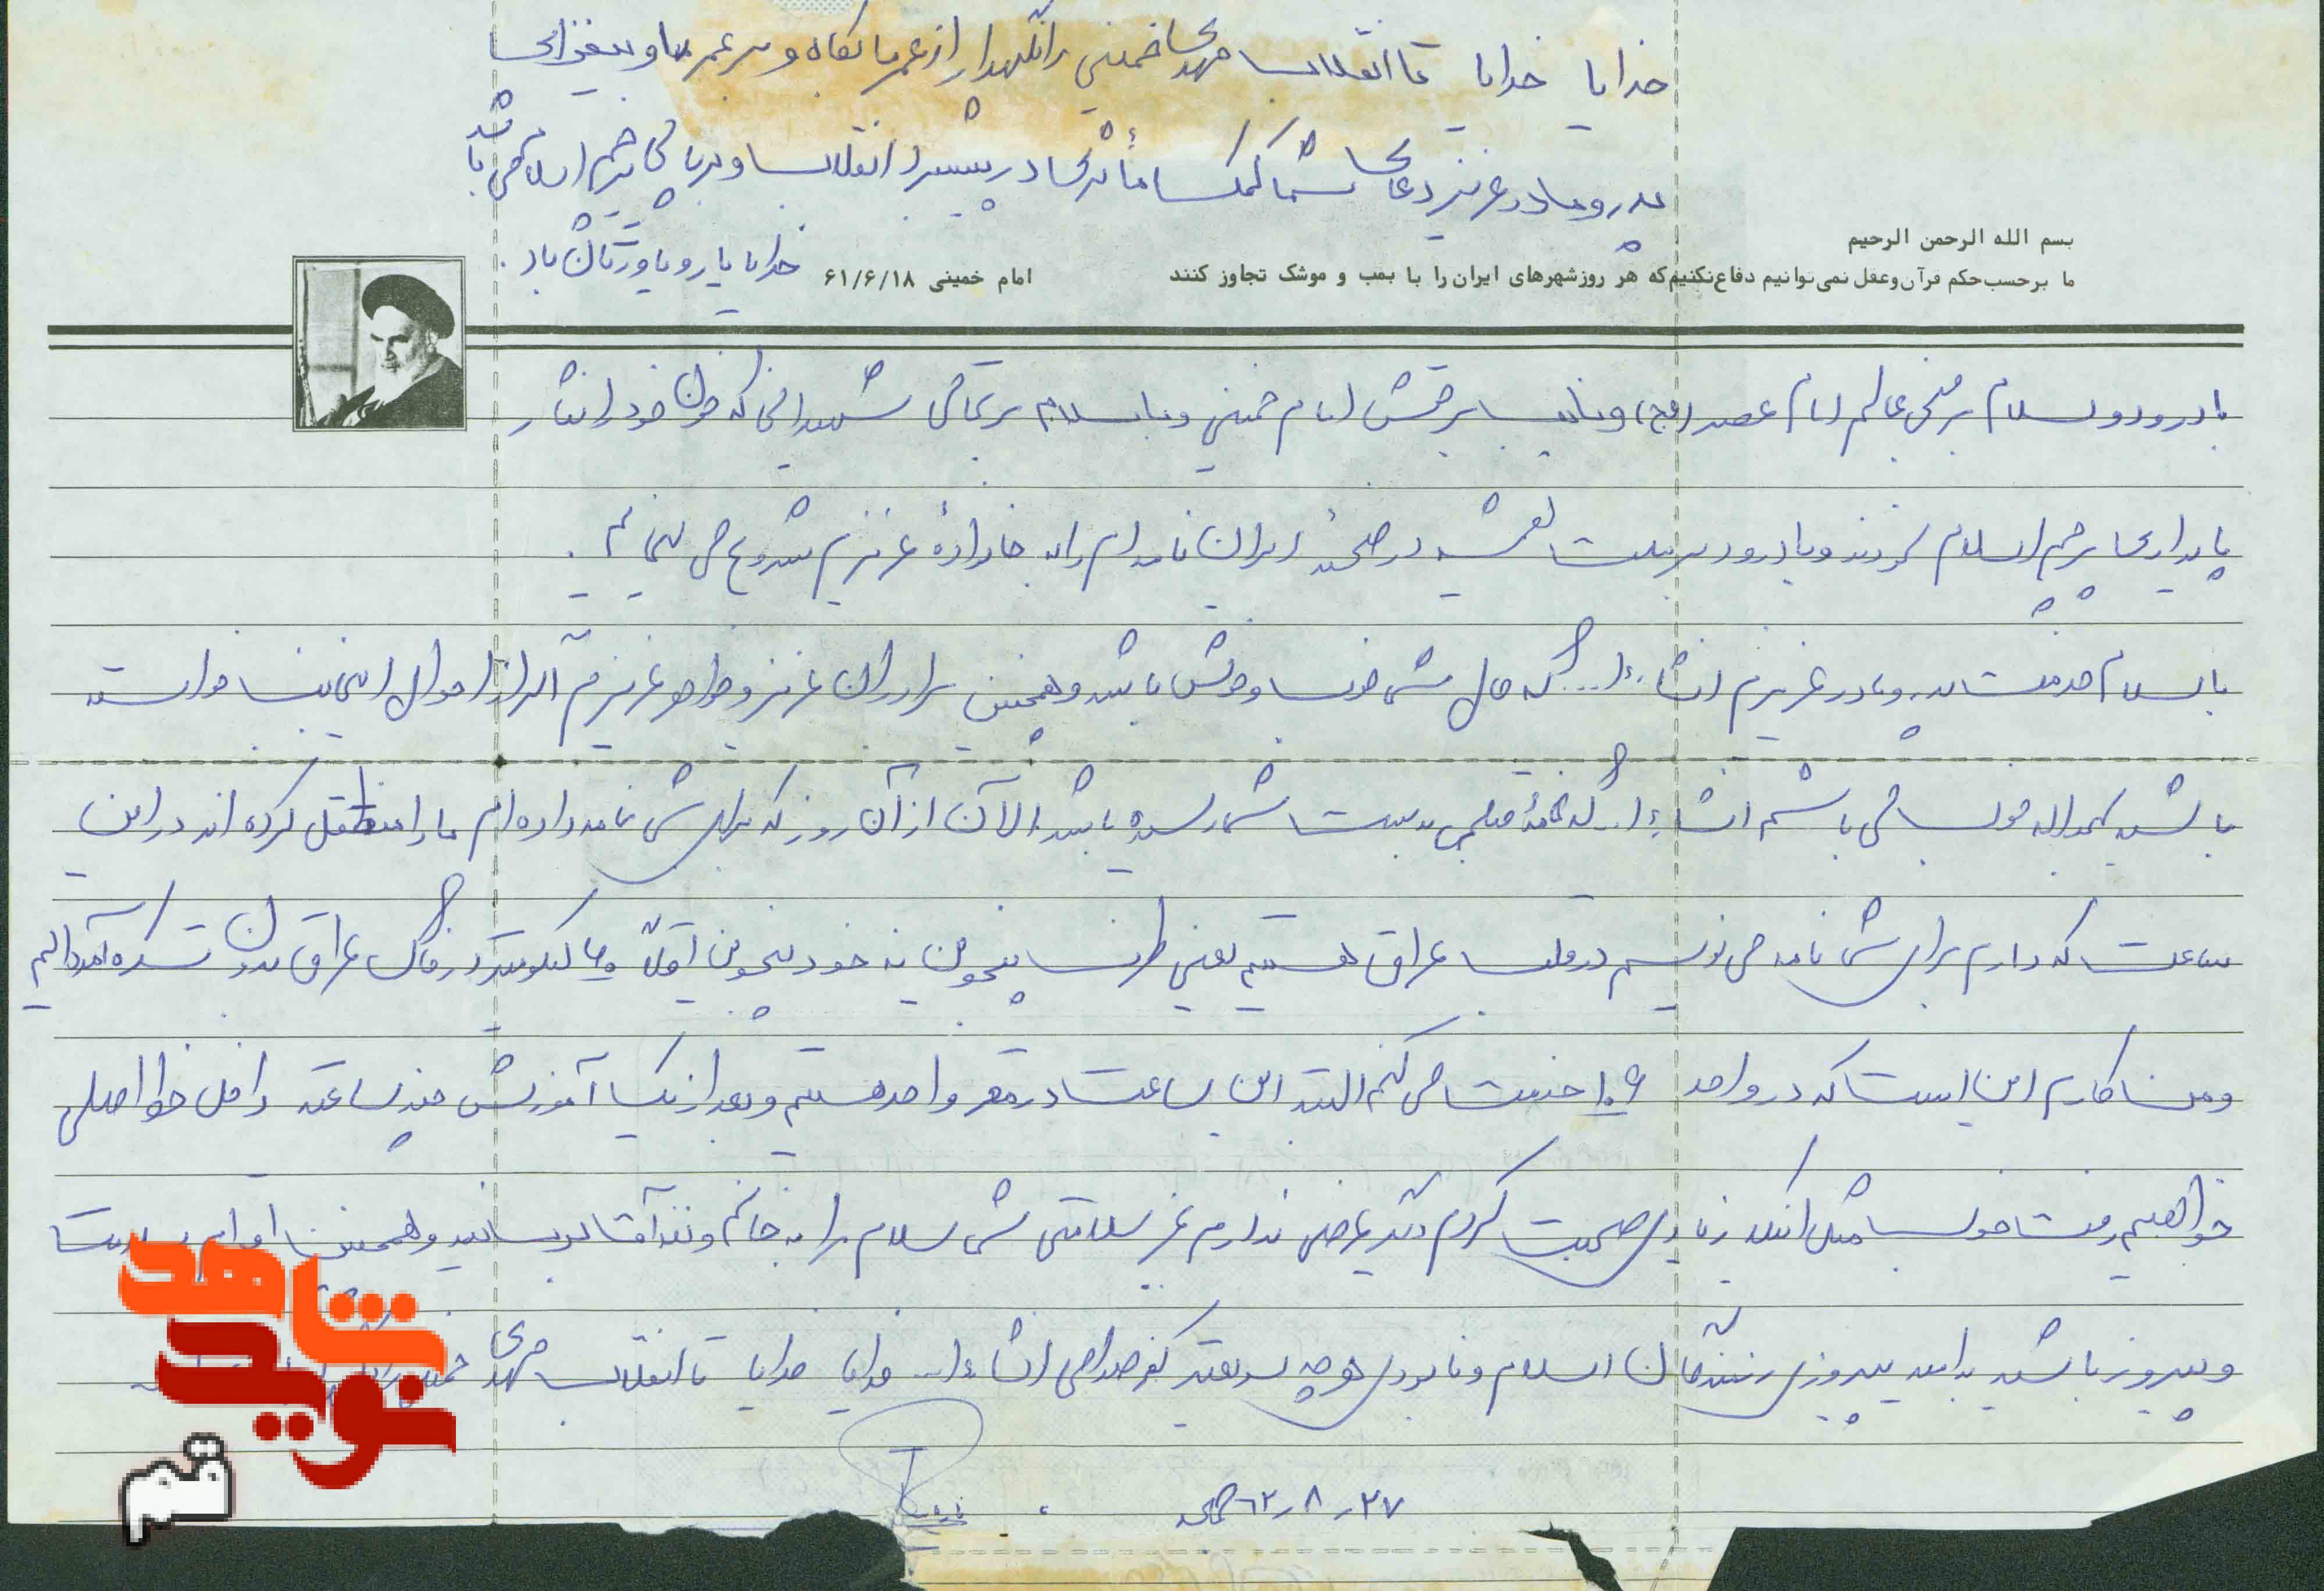 خدایا خدایا تا انقلاب مهدی خمینی را نگهدار از عمر ما بکاه و بر عمر او بیفزای
پدر و مادر عزیز دعای شما کمک مؤثری در پیشبرد انقلاب و برپائی پرچم اسلام می باشد
خدایا یار و یاورتان باد.
بسم الله الرحمن الرحیم
ما برحسب حکم قرآن وعقل نمی توانیم دفاع نکنیم که هر روز شهرهای ایران را با بمب و موشک تجاوز کنند امام خمینی ۶۱/۶/۱۸
با درود و سلام بر منجی عالم امام عصر (عج) و نایب برحقش امام خمینی و با سلام بر تمامی شهدائی که خون خود را نثار
پایداری پرچم اسلام کردند و با درود بر ملت همیشه در صحنهٔ ایران نامه ام را به خانوادهٔ عزیزم شروع می نمایم.
با سلام خدمت پدر و مادر عزیزم انشاءا... که حال شما خوب و خوش باشد و همچنین برادران عزیز و خواهر عزیزم اگر از احوال اینجانب خواسته
باشید بحمدالله خوب می باشم انشاءا... که نامهٔ قبلی بدست شما رسیده باشد الآن از آن روز که برای شما نامه داده ام ما را منتقل کرده اند در این
ساعت که دارم برای شما نامه می نویسم در قلب عراق هستیم یعنی طرف پنجوین نه خود پنجوین اقلاً کیلومتر در خاک عراق بدون تسکره آمده ایم
و من کارم این است که در واحد ۱۰۶ خدمت می کنم البته این ساعت در مقر واحد هستیم و بعد از یک آموزش چند ساعته داخل خط اصلی
خواهیم رفت خوب مثل اینکه زیادی صحبت کردم دیگر عرضی ندارم غیر سلامتی شما سلام مرا به خانم و ننه آقا برسانید و همچنین
و پیروز باشید به امید پیروزی رزمندگان اسلام و نابودی هر چه سریعتر کفر صدامی انشاءا... خدایا خدایا تا انقلاب مهدی
۶۲/۸/۲۷ جمعه
شاهد
نوید
قم